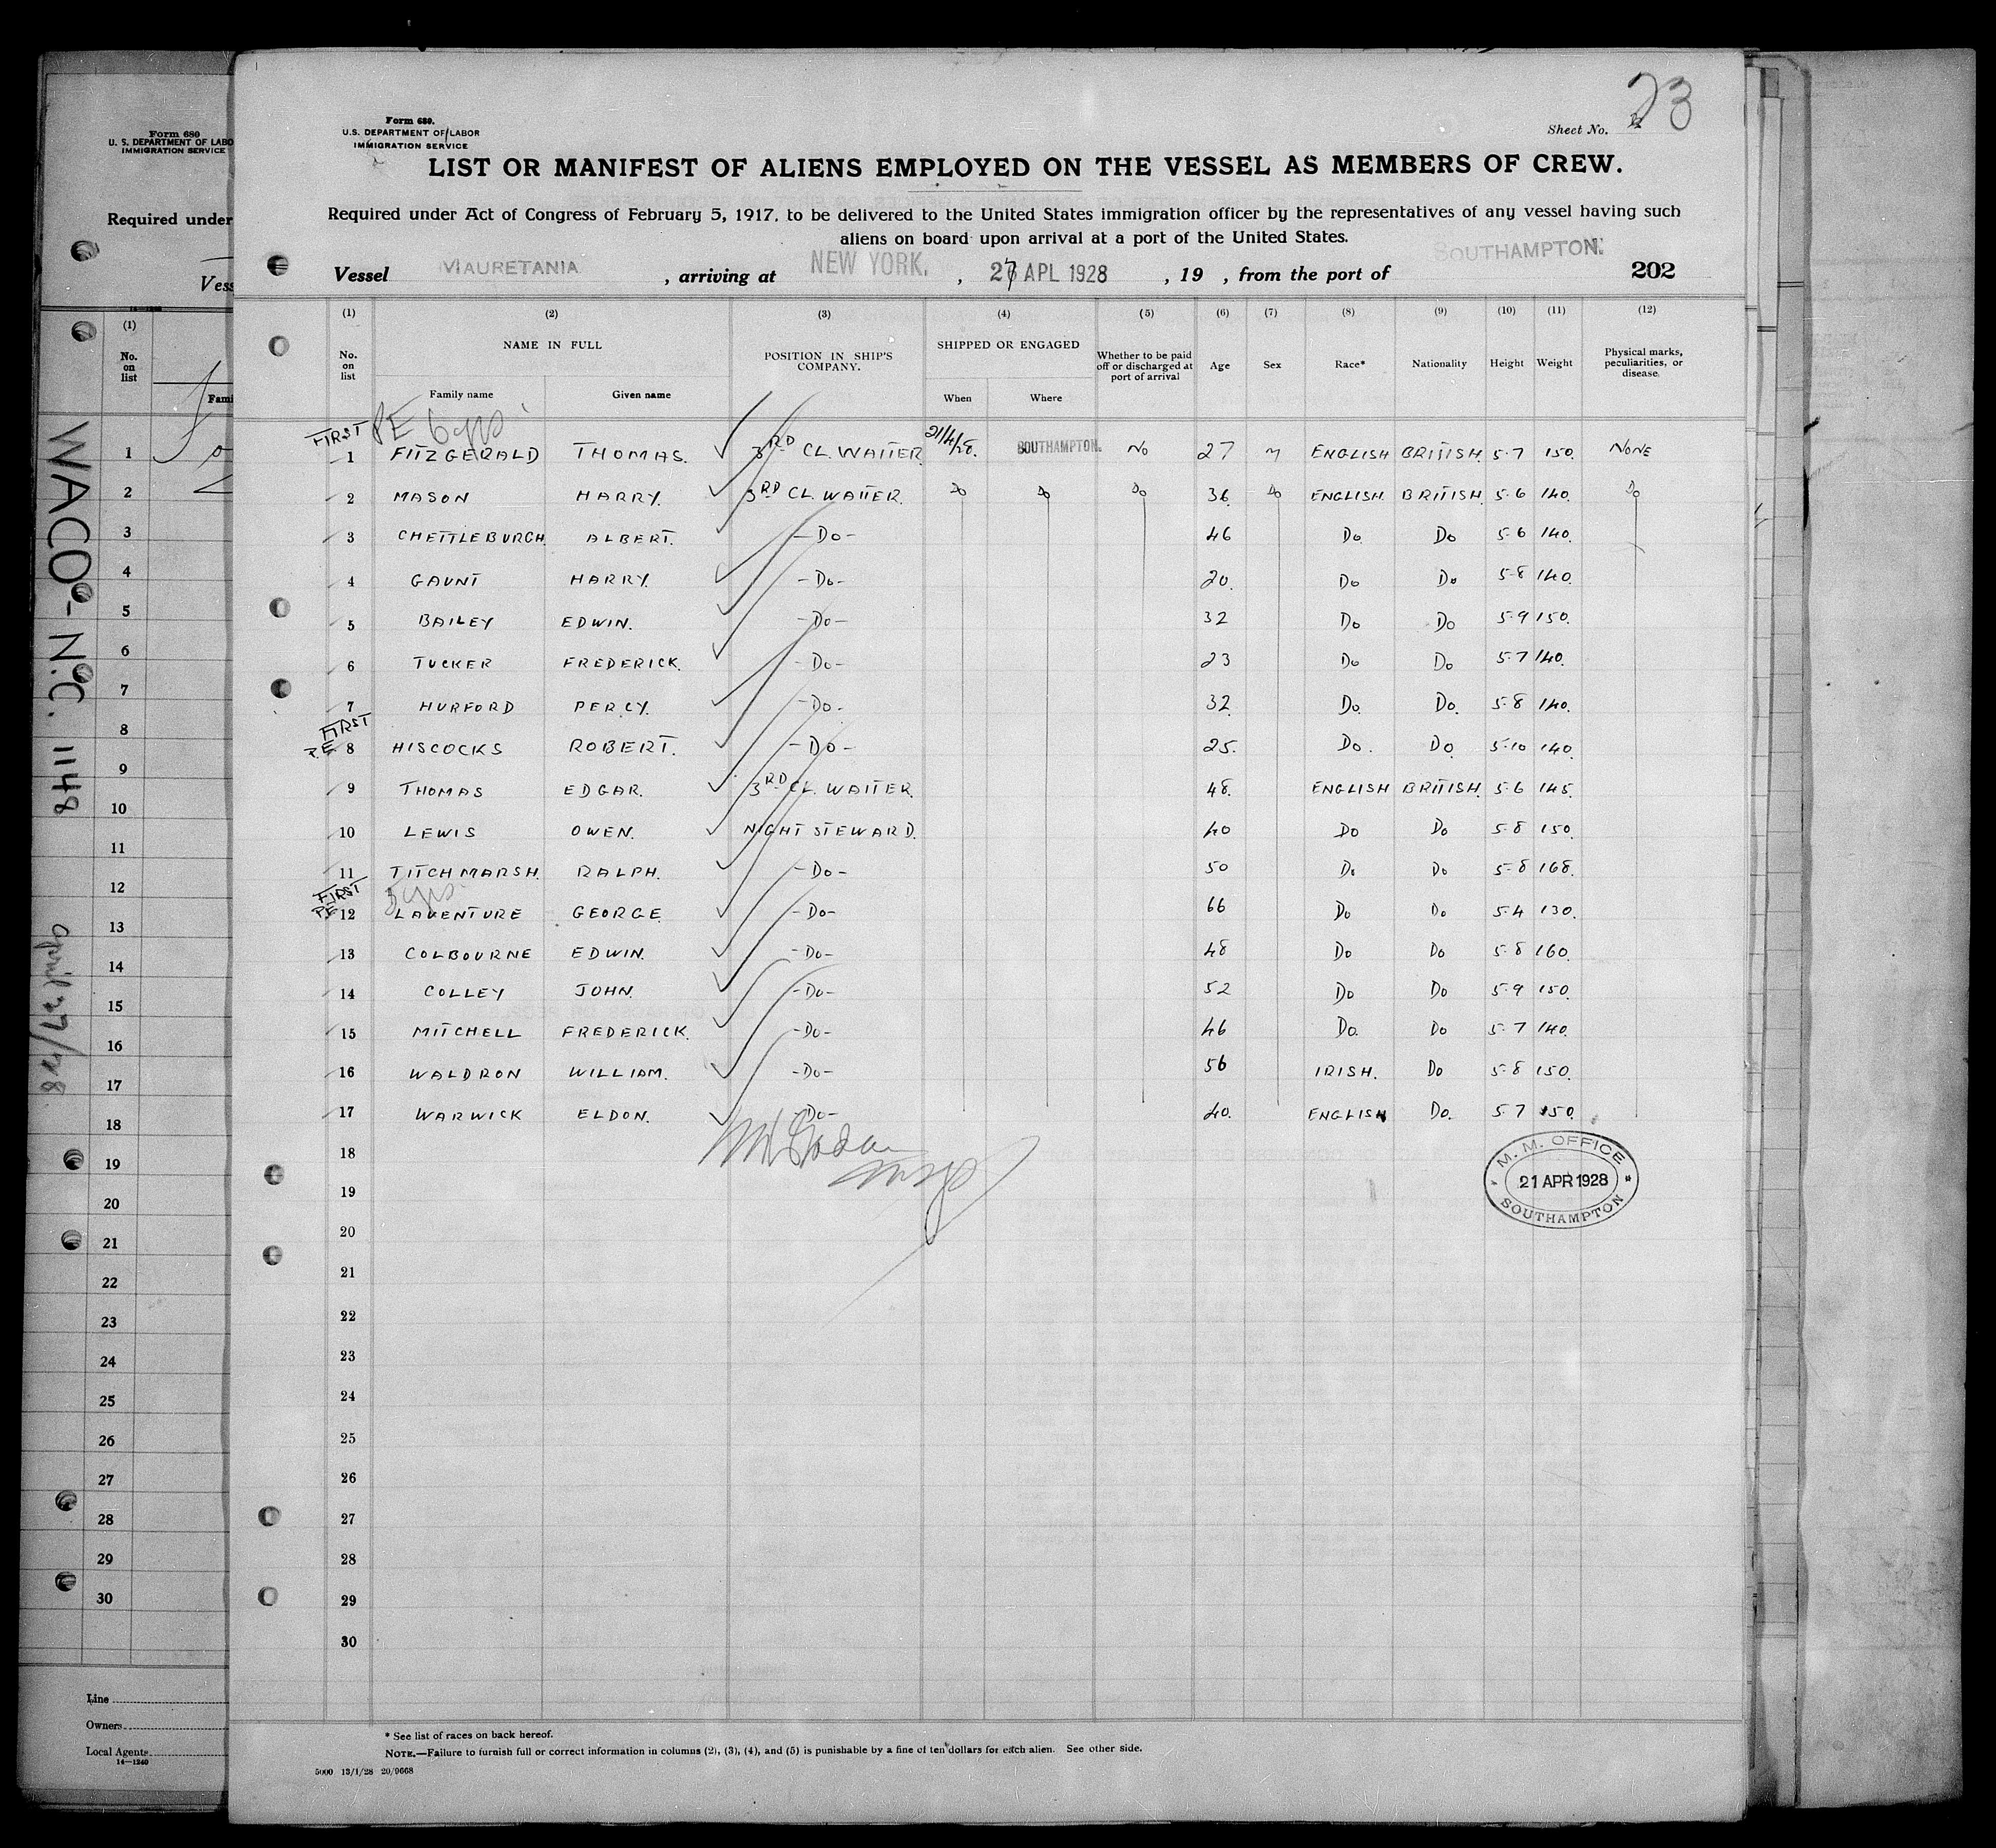 Form 680
U. S. DEPARTMENT OF LABO
IMMIGRATION SERVICE
Required under
Vess
(1)
No. on list
Fami
1
2
3
4
5
6
7
8
9
10
11
12
13
14
15
16
17
18
19
20
21
22
23
24
25
26
27
28
29
30
Line
Owners
Local Agents
14—1240
WACO - N.C. 1148
April 27/28
23
Form 680.
U.S. DEPARTMENT OF LABOR
IMMIGRATION SERVICE
Sheet No.
LIST OR MANIFEST OF ALIENS EMPLOYED ON THE VESSEL AS MEMBERS OF CREW.
Required under Act of Congress of February 5, 1917, to be delivered to the United States immigration officer by the representatives of any vessel having such
aliens on board upon arrival at a port of the United States.
Vessel MAURETANIA , arriving at NEW YORK. , 27 APL 1928 , 19 , from the port of SOUTHAMPTON. 202
(1) (2) (3) (4) (5) (6) (7) (8) (9) (10) (11) (12)
No. on list NAME IN FULL POSITION IN SHIP'S COMPANY. SHIPPED OR ENGAGED Whether to be paid off or discharged at port of arrival Age Sex Race* Nationality Height Weight Physical marks, peculiarities, or disease.
Family name Given name When Where
FIRST PE 6 yrs
1 FITZGERALD THOMAS. 3RD CL. WAITER 21/4/28. SOUTHAMPTON. No 27 M ENGLISH BRITISH 5-7 150. NONE
2 MASON HARRY. 3RD CL. WAITER. Do Do Do 36 Do ENGLISH. BRITISH. 5-6 140. Do
3 CHETTLEBURGH. ALBERT. -Do- 46 Do Do 5-6 140.
4 GAUNT HARRY. -Do- 20. Do Do 5-8 140.
5 BAILEY EDWIN. -Do- 32 Do Do 5-9 150.
6 TUCKER FREDERICK. -Do- 23 Do Do 5-7 140.
7 HURFORD PERCY. -Do- 32 Do Do. 5-8 140.
FIRST
P.E. 8 HISCOCKS ROBERT. -Do- 25. Do. Do 5-10 140
9 THOMAS EDGAR. 3RD CL. WAITER. 48. ENGLISH BRITISH. 5-6 145.
10 LEWIS OWEN. NIGHT STEWARD. 40 Do Do 5-8 150.
11 TITCHMARSH. RALPH. -Do- 50 Do Do 5-8 168.
FIRST 3 yrs
P.E. 12 LAVENTURE GEORGE -Do- 66 Do Do 5-4 130.
13 COLBOURNE EDWIN. -Do- 48 Do Do 5-8 160.
14 COLLEY JOHN. -Do- 52 Do Do 5-9 150.
15 MITCHELL FREDERICK. -Do- 46 Do. Do 5-7 140.
16 WALDRON WILLIAM. -Do- 56 IRISH. Do 5-8 150.
17 WARWICK ELDON. -Do- 40. ENGLISH Do. 5-7 150.
18
19
20
21
22
23
24
25
26
27
28
29
30
M. M. OFFICE
* 21 APR 1928 *
SOUTHAMPTON
* See list of races on back hereof.
NOTE.—Failure to furnish full or correct information in columns (2), (3), (4), and (5) is punishable by a fine of ten dollars for each alien. See other side.
5000 13/1/28 20/9668